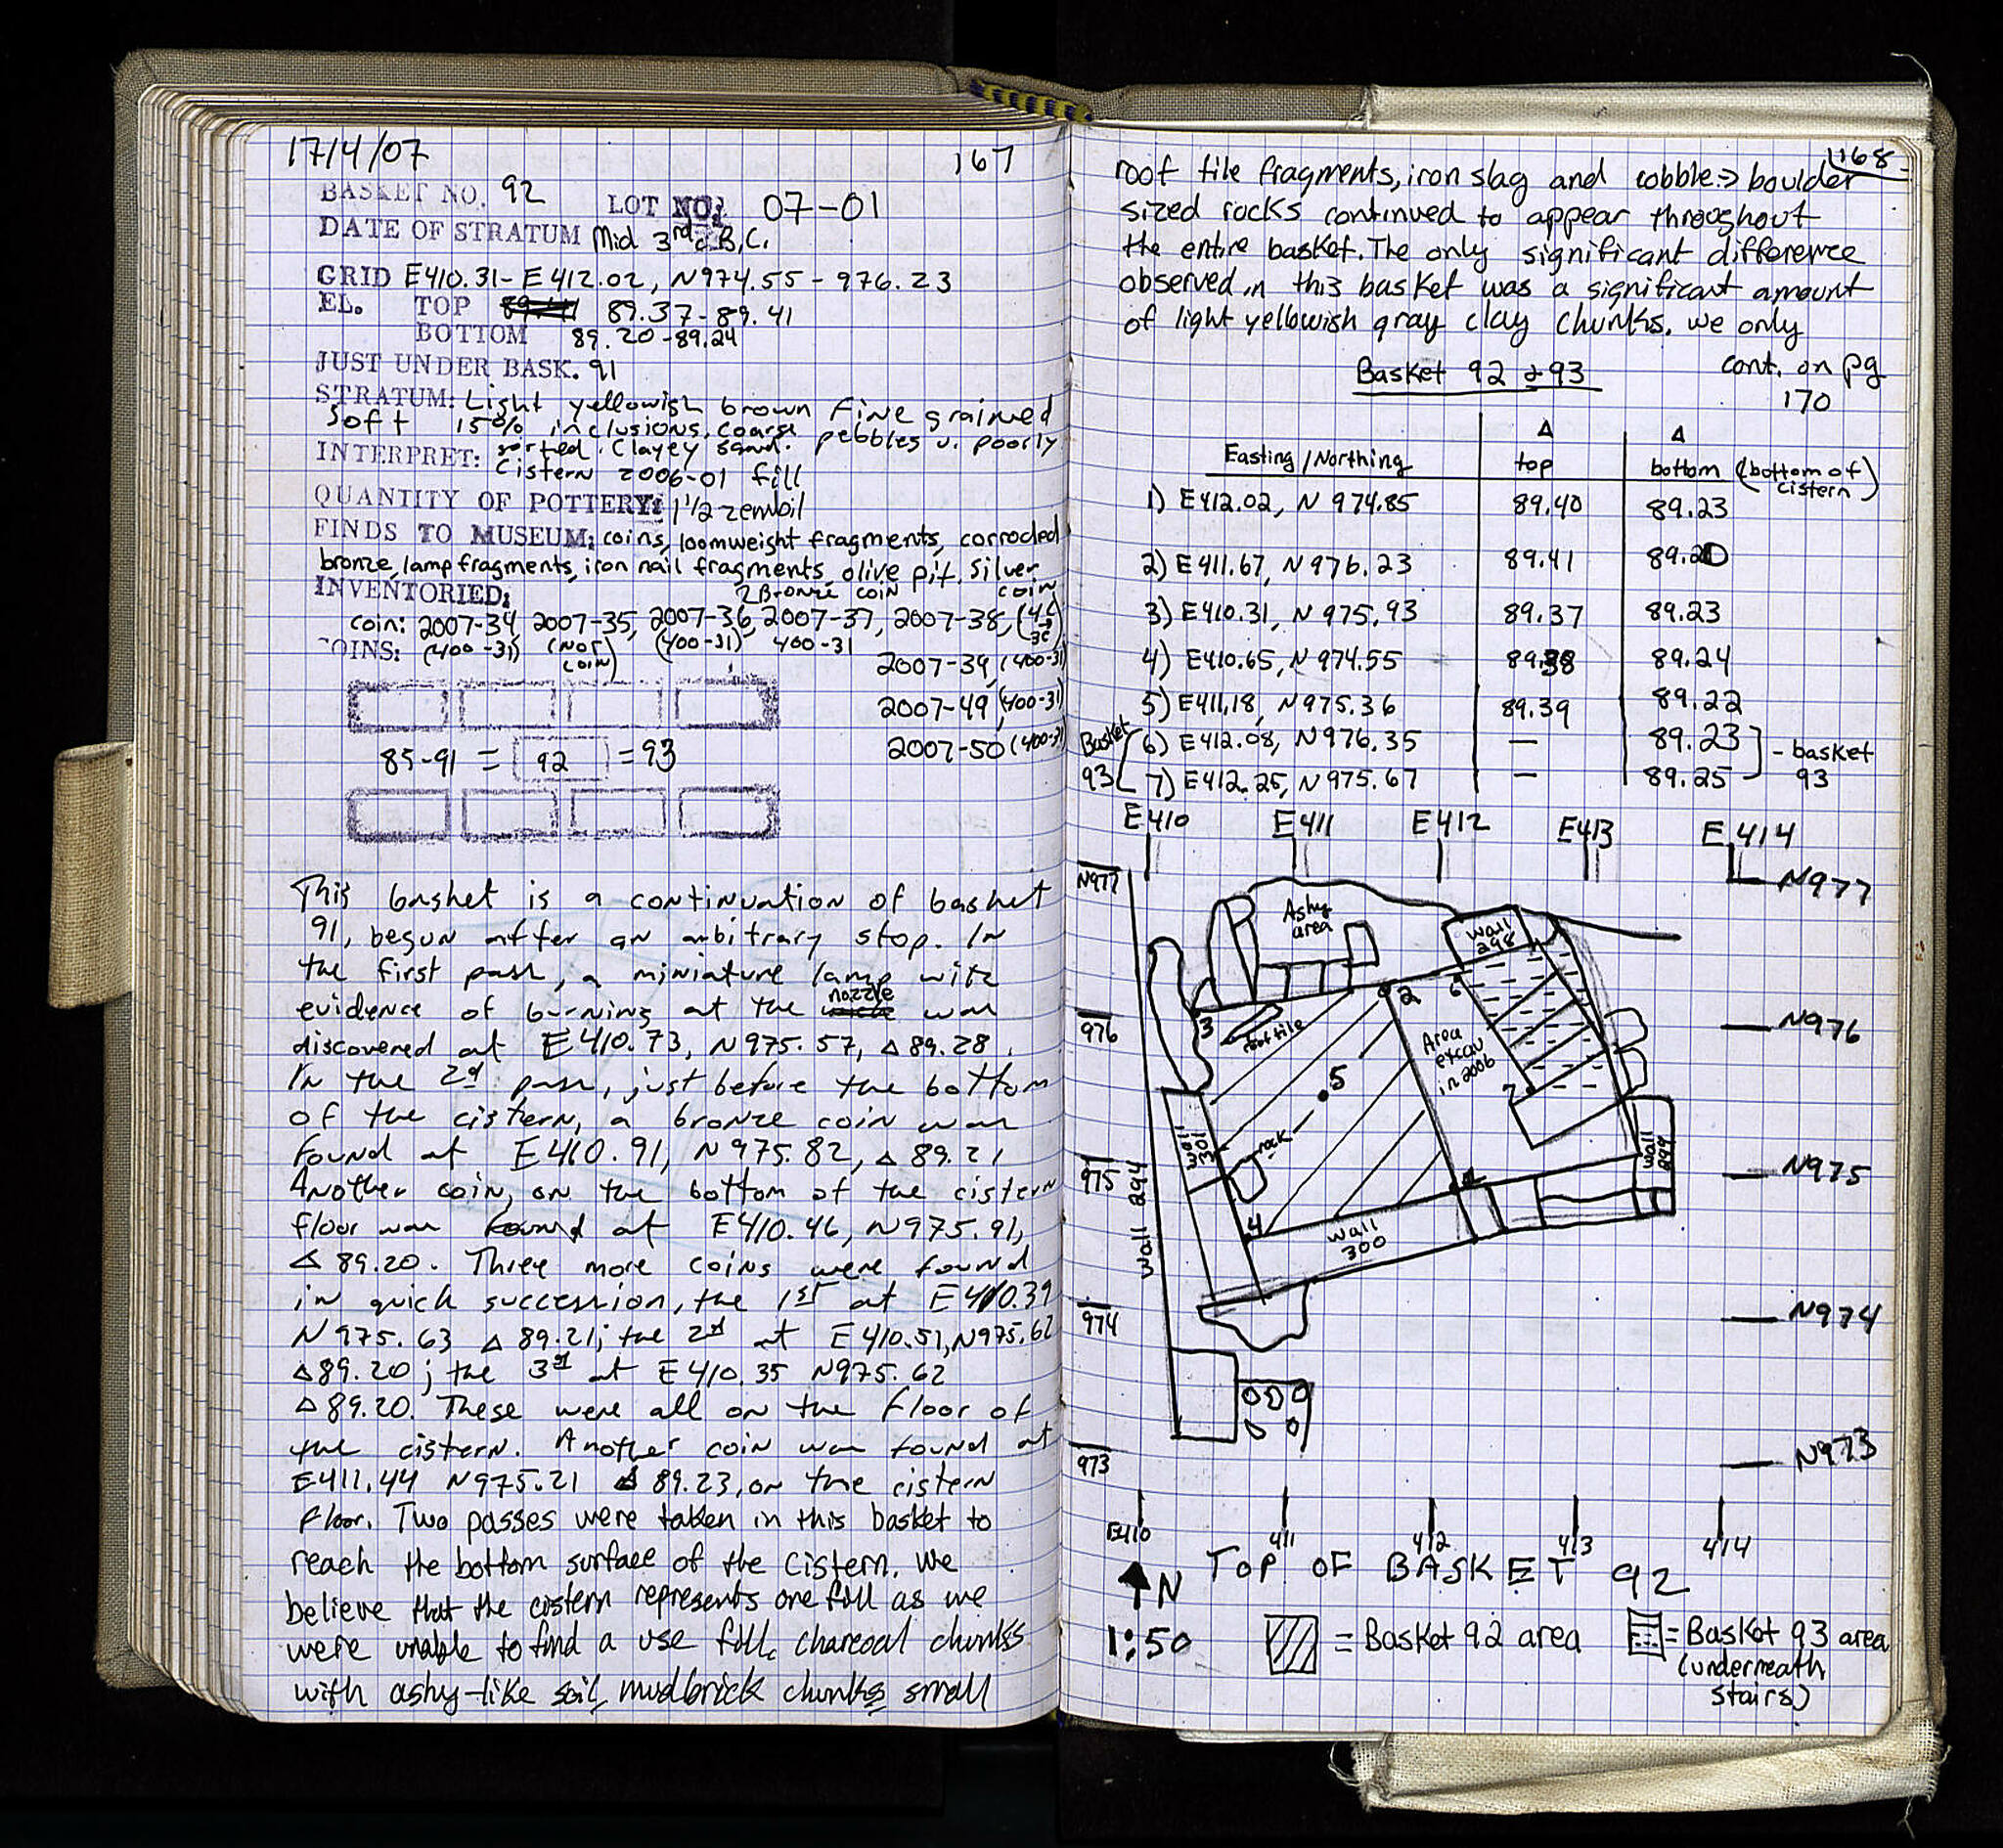 17/4/07 167
BASKET NO. 92 LOT NO. 07-01
DATE OF STRATUM Mid 3rd c. B.C.
GRID E410.31-E412.02, N974.55-976.23
EL. TOP 89.37-89.41
BOTTOM 89.20-89.24
JUST UNDER BASK. 91
STRATUM: Light yellowish brown fine grained
soft 15% inclusions, coarse pebbles v. poorly
sorted. Clayey sand.
INTERPRET: Cistern 2006-01 fill
QUANTITY OF POTTERY: 1 1/2 zembil
FINDS TO MUSEUM: coins, loomweight fragments, corroded
bronze, lamp fragments, iron nail fragments, olive pit, silver
coin
INVENTORIED: 2 Bronze coin
coin: 2007-34, 2007-35, 2007-36, 2007-37, 2007-38,
COINS: (400-31) (NOT COIN) (400-31) 400-31
2007-39, (400-31)
2007-49, (400-31)
2007-50 (400-31)
85-91 = 92 = 93
This basket is a continuation of basket
91, begun after an arbitrary stop. In
the first pass, a miniature lamp with
evidence of burning at the nozzle was
discovered at E410.73, N975.57, Δ89.28.
In the 2nd pass, just before the bottom
of the cistern, a bronze coin was
found at E410.91, N975.82, Δ 89.21
Another coin, on the bottom of the cistern
floor was found at E410.46, N975.91,
Δ 89.20. Three more coins were found
in quick succession, the 1st at E410.39
N975.63 Δ 89.21; the 2nd at E410.51, N975.62
Δ89.20; the 3rd at E410.35 N975.62
Δ89.20. These were all on the floor of
the cistern. Another coin was found at
E411.44 N975.21 Δ 89.23, on the cistern
floor. Two passes were taken in this basket to
reach the bottom surface of the cistern. We
believe that the cistern represents one fill as we
were unable to find a use fill. Charcoal chunks
with ashy-like soil, mudbrick chunks, small
168
roof tile fragments, iron slag and cobble → boulder
sized rocks continued to appear throughout
the entire basket. The only significant difference
observed in this basket was a significant amount
of light yellowish gray clay chunks. We only
cont. on pg
170
Basket 92 & 93
Easting/Northing Δ top Δ bottom (bottom of cistern)
1) E412.02, N 974.85 89.40 89.23
2) E411.67, N976.23 89.41 89.20
3) E410.31, N 975.93 89.37 89.23
4) E410.65, N 974.55 89.38 89.24
5) E411.18, N975.36 89.39 89.22
Basket 93 6) E412.08, N976.35 — 89.23 - basket 93
7) E412.25, N975.67 — 89.25
E410 E411 E412 E413 E414
N977 N977
Ashy area
wall 298
2 6
3
roof tile
976 N976
Area excav in 2006
5
7
wall 301
rock
wall 299
975 N975
1
4
wall 300
Wall 294
974 N974
973 N973
E410 411 412 413 414
TOP OF BASKET 92
N
1:50 = Basket 92 area = Basket 93 area
(underneath
stairs)